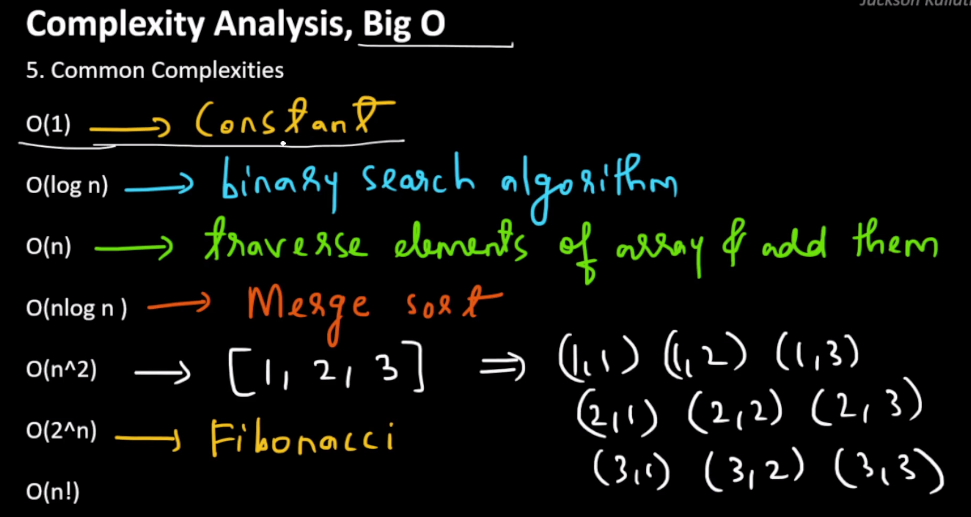 Complexity Analysis, Big O
5. Common Complexities
O(1) → Constant
O(log n) → binary search algorithm
O(n) → traverse elements of array & add them
O(nlog n ) → Merge sort
O(n^2) → [1, 2, 3] ⇒ (1,1) (1,2) (1,3)
(2,1) (2,2) (2,3)
O(2^n) → Fibonacci
(3,1) (3,2) (3,3)
O(n!)